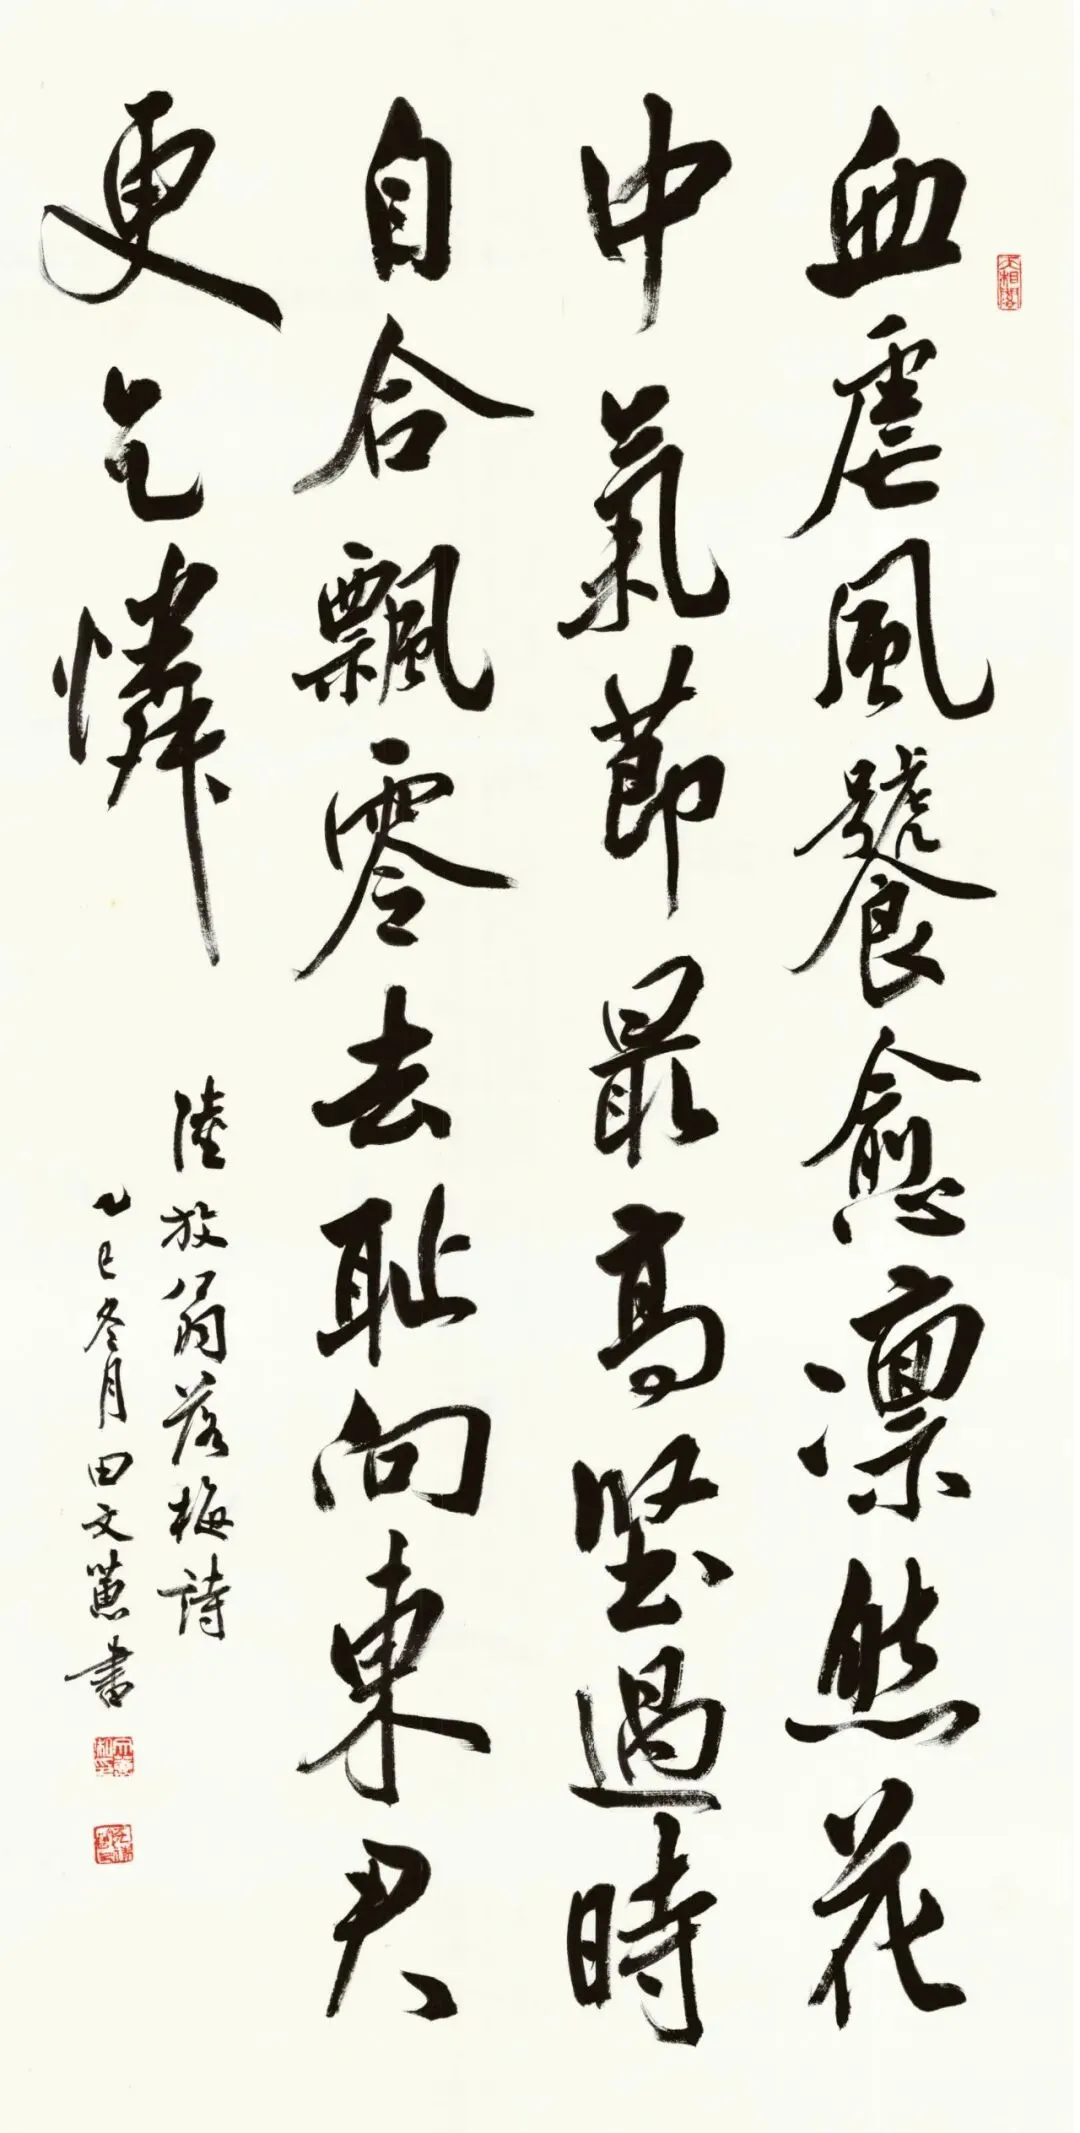 血虐風饕愈凛然花
中氣節最高堅過時
自合飄零去耻向東君
更乞憐
陸放翁落梅詩
乙巳冬月田文蕙書